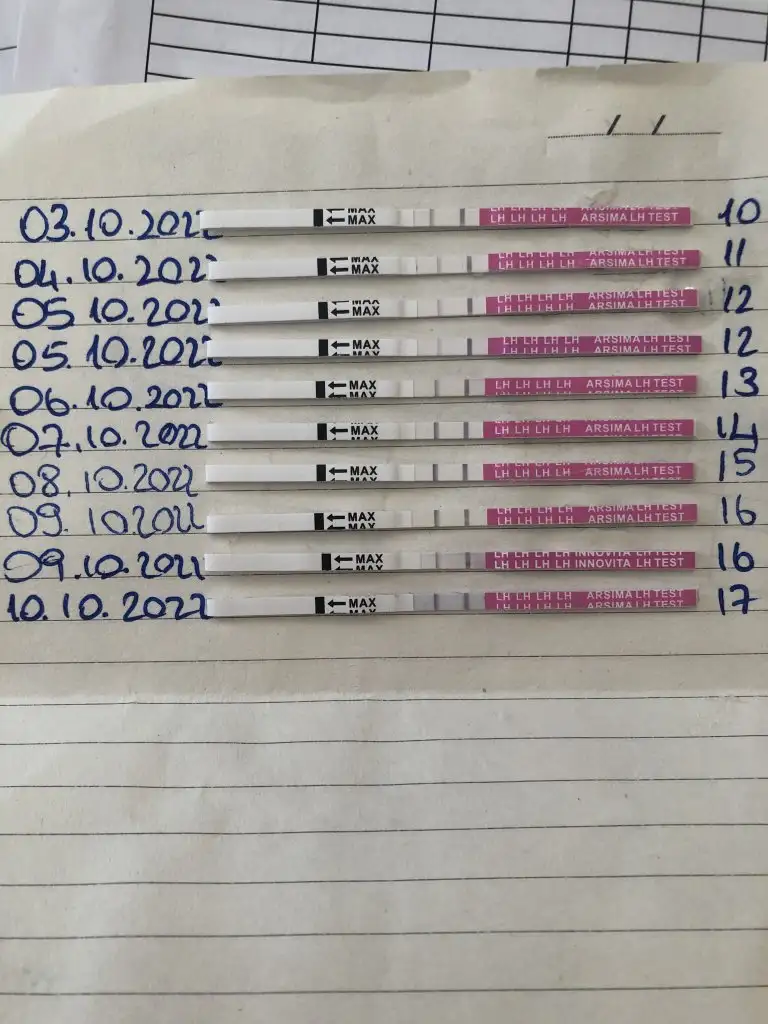 / /
03.10.2022 ←MAX LH LH LH LH ARSIMA LH TEST 10
04.10.2022 ←MAX LH LH LH LH ARSIMA LH TEST 11
05 10.2022 ←MAX LH LH LH LH ARSIMA LH TEST 12
05.10.2022 ←MAX LH LH LH LH ARSIMA LH TEST 12
06.10.2022 ←MAX LH LH LH LH ARSIMA LH TEST 13
07.10.2022 ←MAX LH LH LH LH ARSIMA LH TEST 14
08.10.2022 ←MAX LH LH LH LH ARSIMA LH TEST 15
09. 10 2022 ←MAX LH LH LH LH ARSIMA LH TEST 16
09.10.2022 ←MAX LH LH LH LH INNOVITA LH TEST 16
10.10.2022 ←MAX LH LH LH LH ARSIMA LH TEST 17